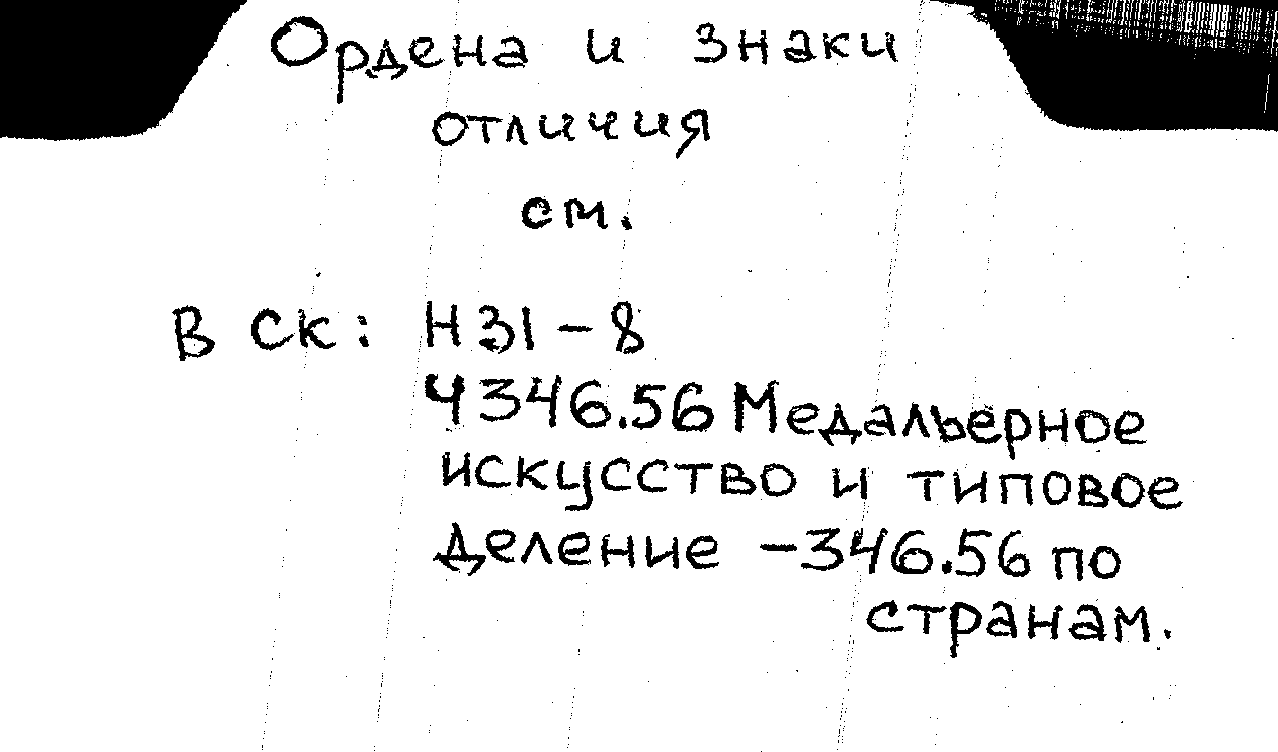 Ордена и знаки
отличия
см.
В СК: Н31-8
Ч346.56 Медальерное
искусство и типовое
деление -346.56 по
странам.